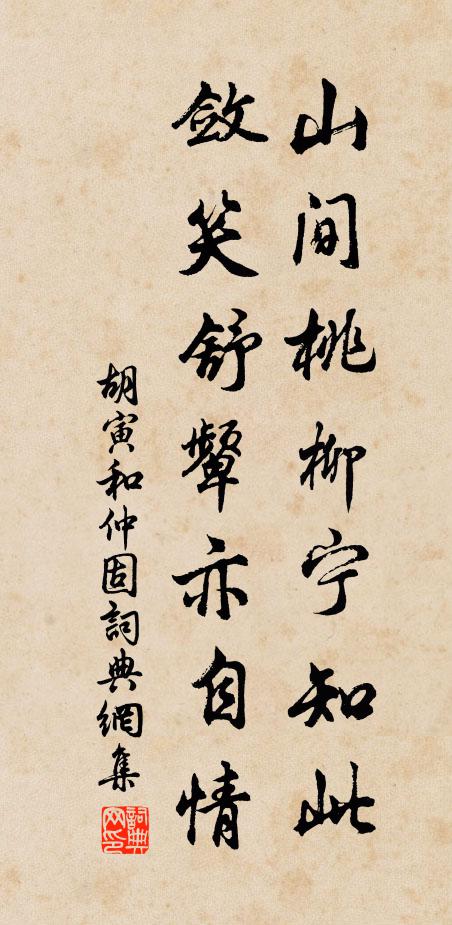 山间桃柳宁知此
敛笑舒颦亦自情
胡寅和仲固詞典網集
詞典网印